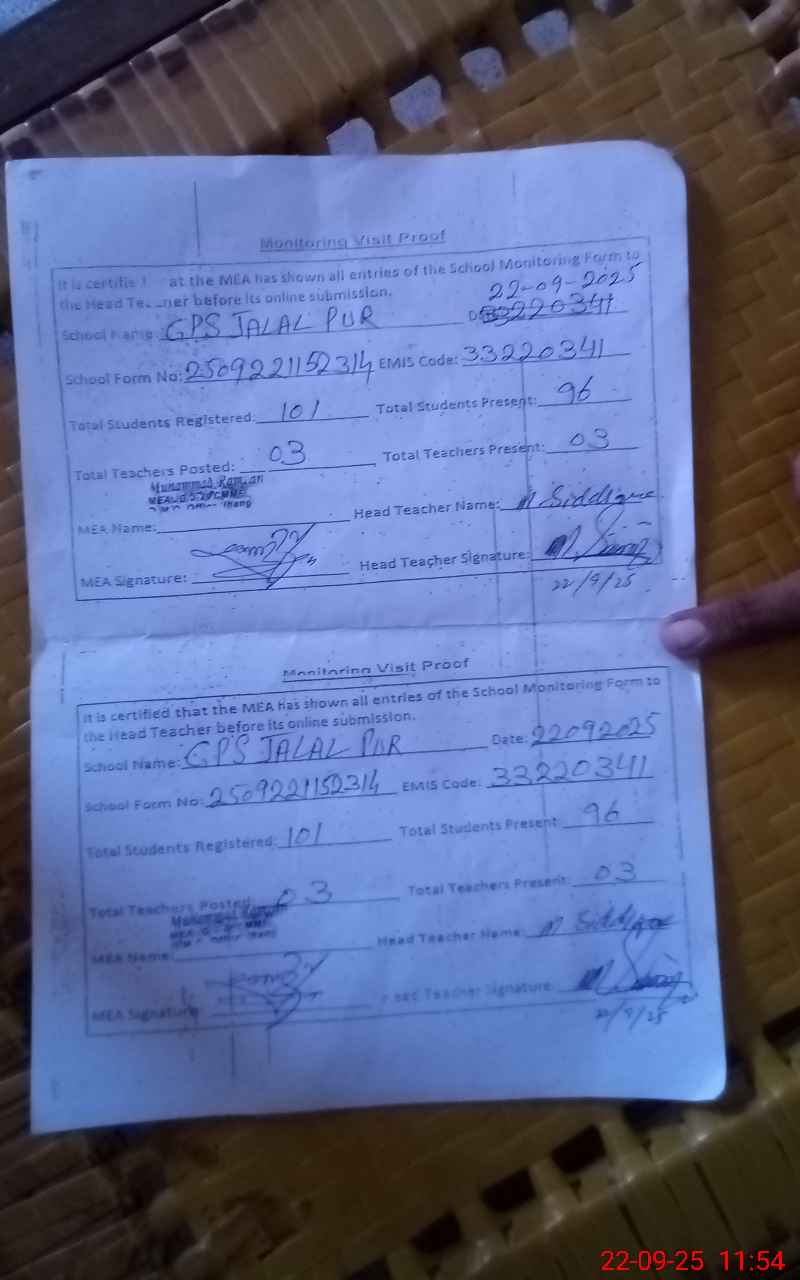 Monitoring Visit Proof
It is certifie at the MEA has shown all entries of the School Monitoring Form to
the Head Te ner before its online submission.
22-09-2025
School Name: GPS JALAL PUR D 33220341
School Form No: 2509221152314 EMIS Code: 33220341
Total Students Registered: 101 Total Students Present: 96
Total Teachers Posted: 03 Total Teachers Present: 03
Muhammad Ramzan
MEA Name: Head Teacher Name: M Siddique
MEA Signature: Head Teacher Signature:
22/9/25
Monitoring Visit Proof
It is certified that the MEA has shown all entries of the School Monitoring Form to
the Head Teacher before its online submission.
School Name: GPS JALAL PUR Date: 22092025
School Form No: 2509221152314 EMIS Code: 33220341
Total Students Registered: 101 Total Students Present: 96
Total Teachers Posted: 03 Total Teachers Present: 03
MEA Name: Head Teacher Name: M Siddique
MEA Signature: Teacher Signature:
22/9/25
22-09-25 11:54